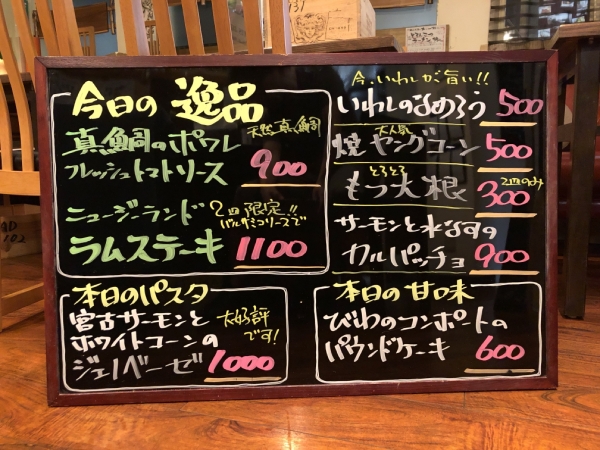 今日の 逸品
真鯛のポワレ 天然真鯛
フレッシュトマトソース 900
ニュージーランド 2皿限定!!
バルサミコソースで
ラムステーキ 1100
今、いわしが旨い!!
いわしのなめろう 500
大人気
焼ヤングコーン 500
とろとろ
もつ大根 300
サーモンと水なすの
カルパッチョ 900
本日のパスタ
宮古サーモンと 大好評
ホワイトコーンの です!
ジェノベーゼ 1000
本日の甘味
びわのコンポートの
パウンドケーキ 600